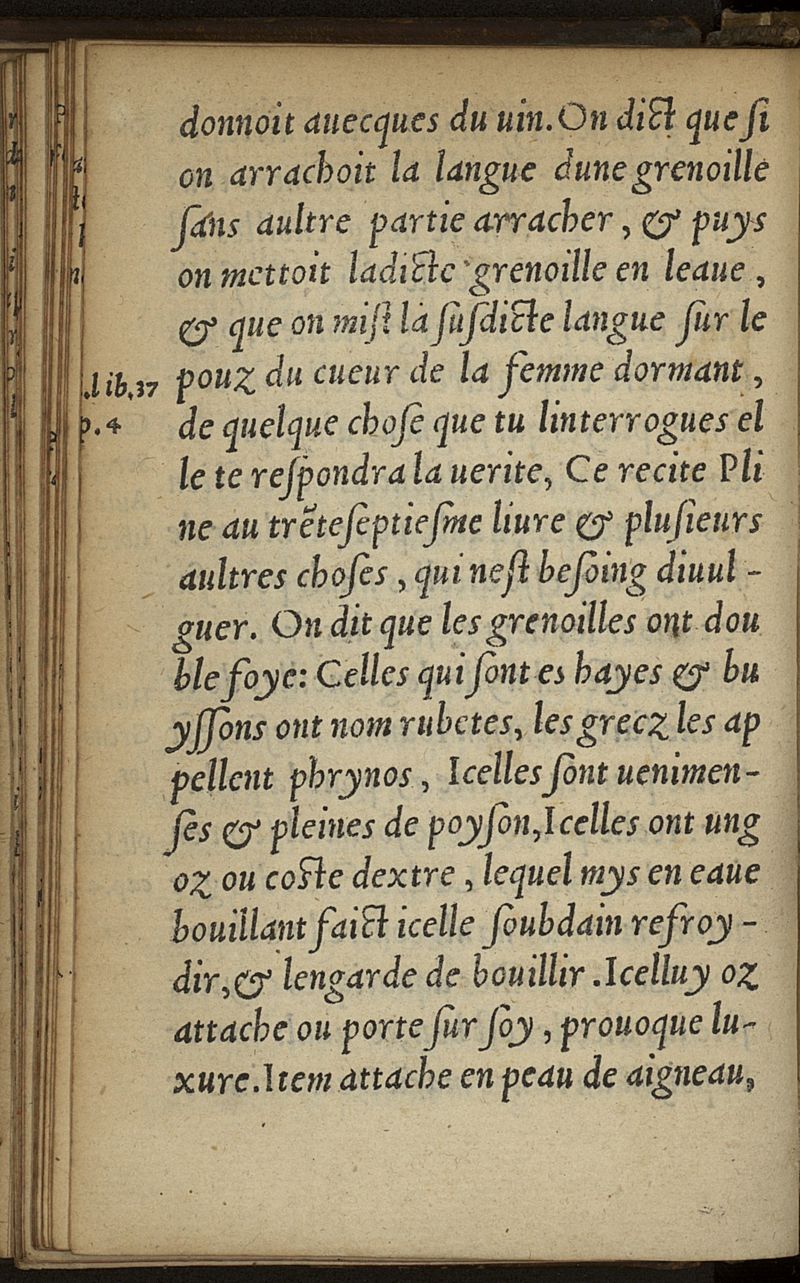 donnoit auecques du uin. On dict que ſi
on arrachoit la langue dune grenoille
ſans aultre partie arracher, & puys
on mettoit ladicte grenoille en leaue,
& que on miſt la ſuſdicte langue ſur le
.lib.37
pouz du cueur de la femme dormant,
p.4
de quelque choſe que tu linterrogues el
le te reſpondra la uerite, Ce recite Pli
ne au trẽteſeptieſme liure & pluſieurs
aultres choſes, qui neſt beſoing diuul-
guer. On dit que les grenoilles ont dou
ble foye: Celles qui ſont es hayes & bu
yſſons ont nom rubetes, les grecz les ap
pellent phrynos, Icelles ſont uenimen-
ſes & pleines de poyſon, Icelles ont ung
oz ou coſte dextre, lequel mys en eaue
bouillant faict icelle ſoubdain refroy-
dir, & lengarde de bouillir. Icelluy oz
attache ou porte ſur ſoy, prouoque lu-
xure. Item attache en peau de aigneau,